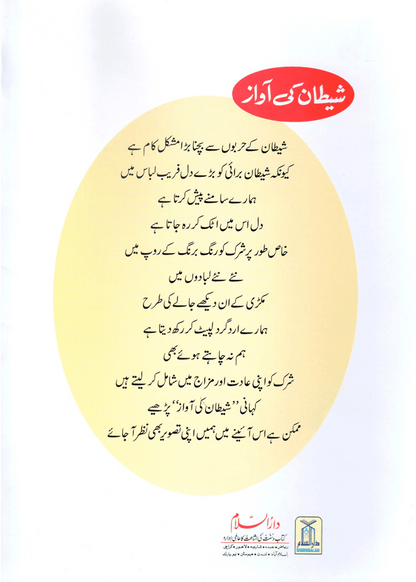 شیطان کی آواز
شیطان کے حربوں سے بچنا بڑا مشکل کام ہے
کیونکہ شیطان برائی کو بڑے دل فریب لباس میں
ہمارے سامنے پیش کرتا ہے
دل اس میں اٹک کر رہ جاتا ہے
خاص طور پر شرک کو رنگ برنگ کے روپ میں
نئے نئے لبادوں میں
مکڑی کے ان دیکھے جالے کی طرح
ہمارے اردگرد لپیٹ کر رکھ دیتا ہے
ہم نہ چاہتے ہوئے بھی
شرک کو اپنی عادت اور مزاج میں شامل کر لیتے ہیں
کہانی ”شیطان کی آواز“ پڑھیے
ممکن ہے اس آئینے میں ہمیں اپنی تصویر بھی نظر آ جائے
دارالسلام
کتاب و سنت کی اشاعت کا عالمی ادارہ
ریاض • جدہ • شارجہ • لاہور • کراچی
اسلام آباد • لندن • ہیوسٹن • نیو یارک
دارالسلام
DARUSSALAM